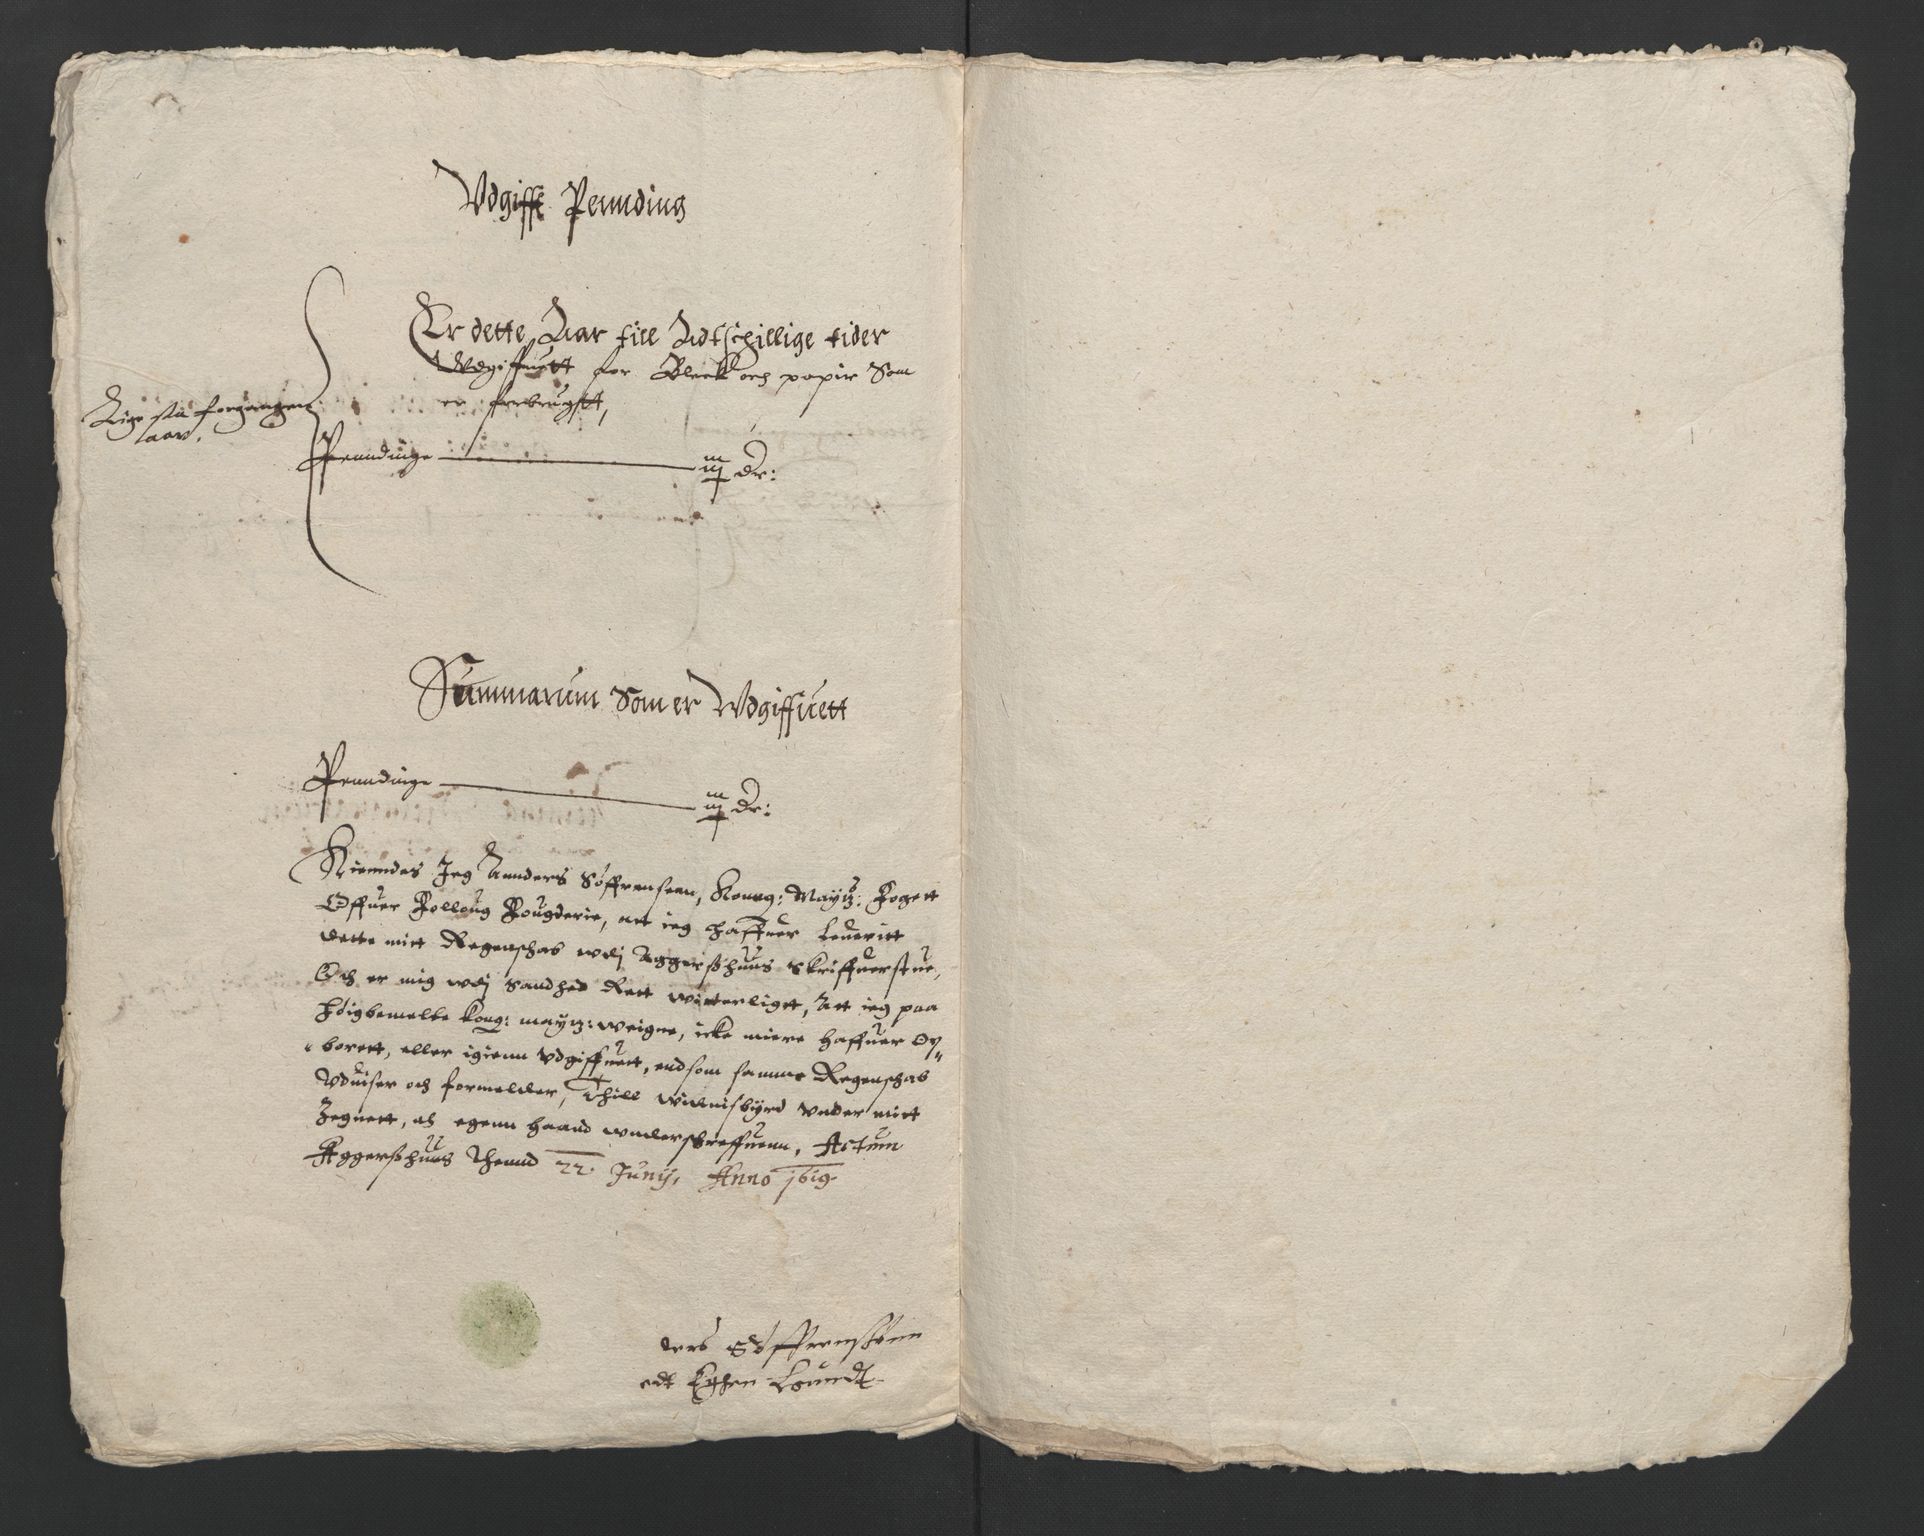 Vdgifft Pennding
Er dette Aar till Adtschillige tider
Wdgiffuett for Bleck och papir Som
er forbrugtt,
Lige saa forgangen
aar.
Penndinge iiij dr:
Summarum Som er Wdgiffuett
Penndinge iiij dr:
Kienndes Jeg Annders Søffrensenn, Konng: Maytz: Fogett
Offuer Follong Fougderie, att ieg haffuer leueritt
dette mitt Regenschab wdj Aggershuus Skriffuerstue,
Och er mig wdj Sandhed Rett witterligtt, Att ieg paa
høigbemelte kong: maytz: weigne, icke miere haffuer Op„
„borett, eller igienn Vdgiffuett, end som samme Regenschab
Vduiser och formelder, Thill widnisbyrd Vnder mitt
Zegnett, och egenn haand wnderschreffuenn, Actum
Aggershuus Thennd 22. Junij, Anno 1619.
ders Søffrensønn
edt Eghen Haundt